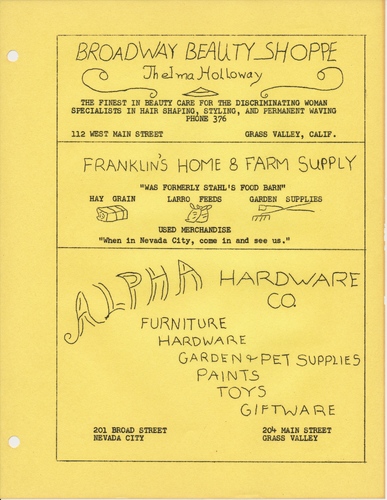 BROADWAY BEAUTY SHOPPE
Thelma Holloway
THE FINEST IN BEAUTY CARE FOR THE DISCRIMINATING WOMAN
SPECIALISTS IN HAIR SHAPING, STYLING, AND PERMANENT WAVING
PHONE 376
112 WEST MAIN STREET GRASS VALLEY, CALIF.
FRANKLIN'S HOME & FARM SUPPLY
"WAS FORMERLY STAHL'S FOOD BARN"
HAY GRAIN LARRO FEEDS GARDEN SUPPLIES
USED MERCHANDISE
"When in Nevada City, come in and see us."
ALPHA HARDWARE
CO.
FURNITURE
HARDWARE
GARDEN & PET SUPPLIES
PAINTS
TOYS
GIFTWARE
201 BROAD STREET 204 MAIN STREET
NEVADA CITY GRASS VALLEY